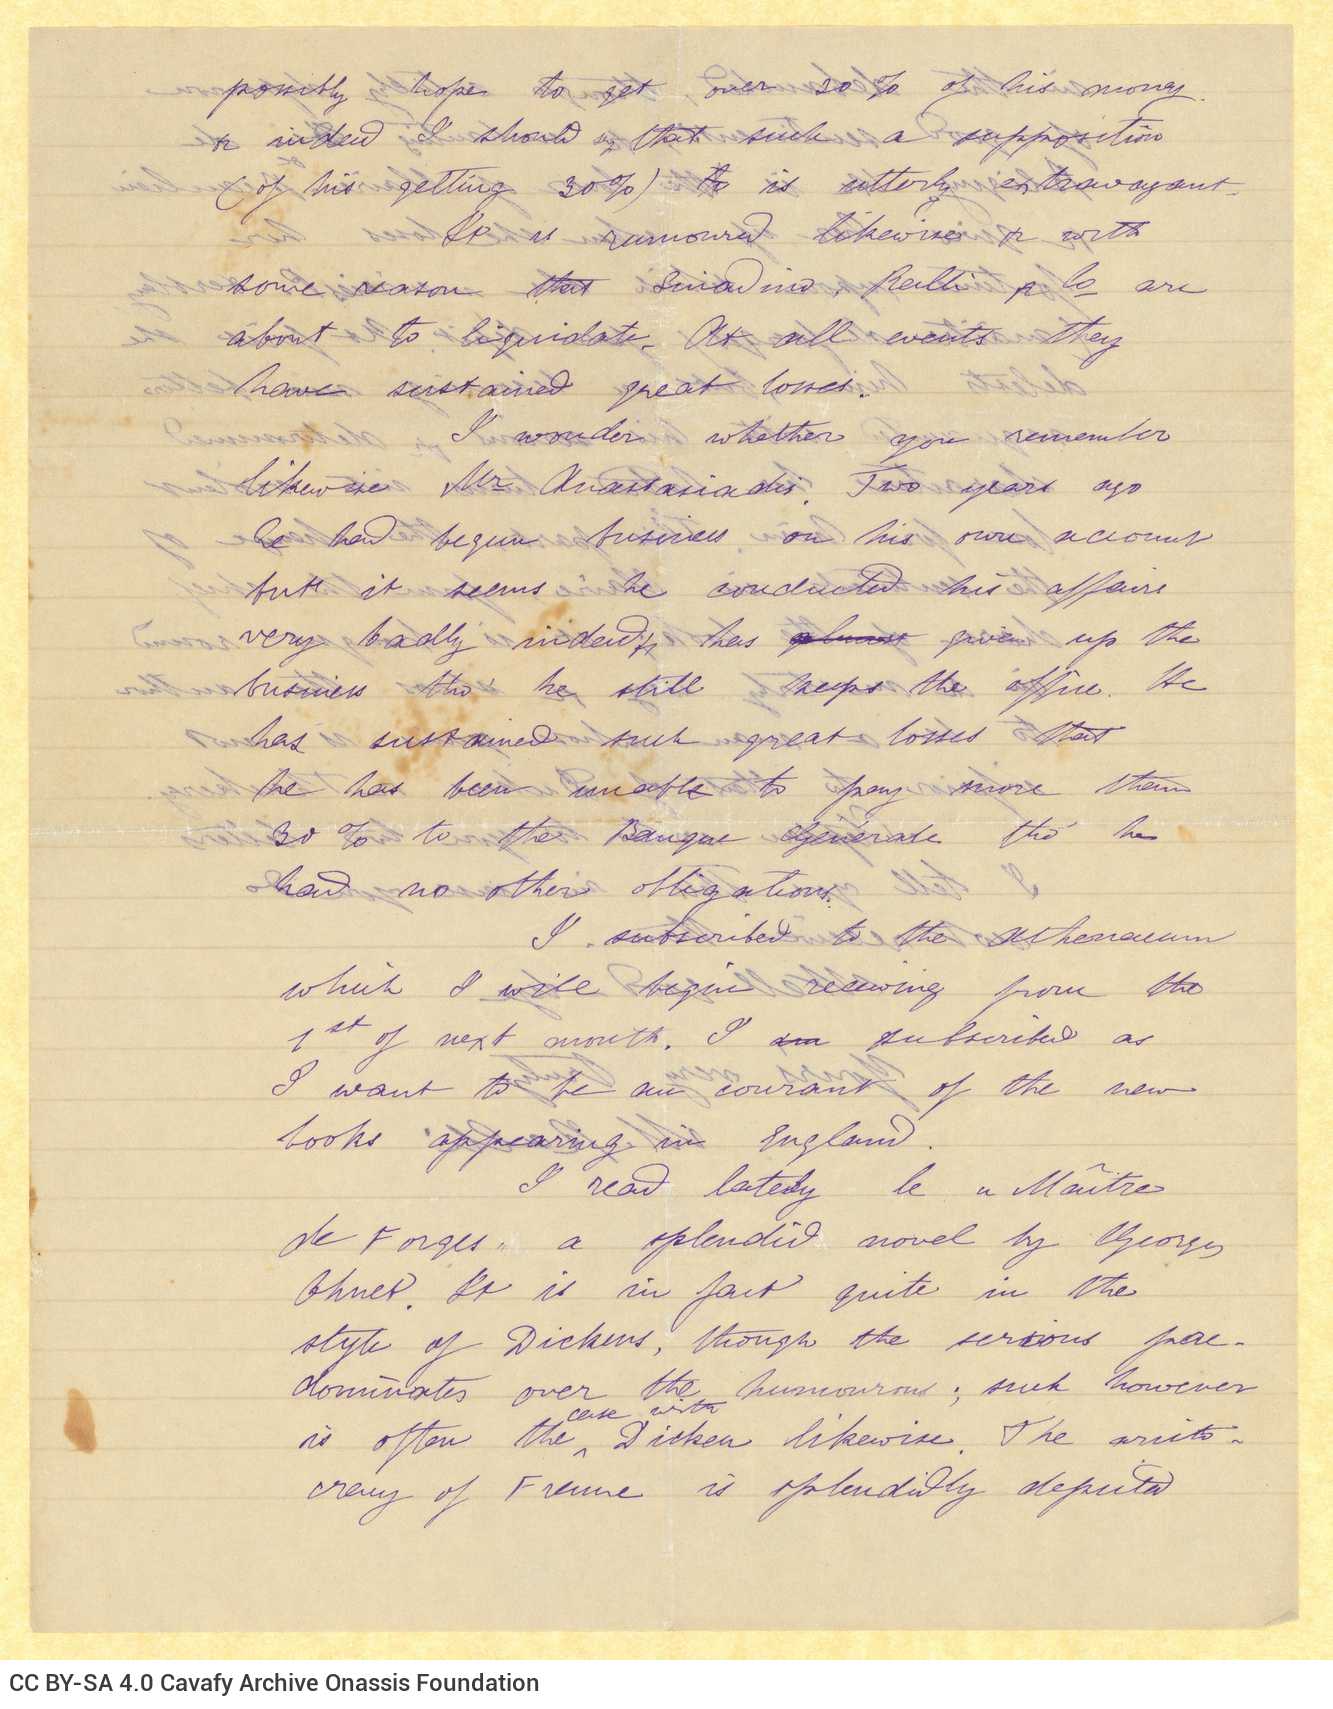 possibly hope to get over 30% of his money.
& indeed I should say that such a supposition
(of his getting 30%) to is utterly extravagant.
It is rumoured likewise & with
some reason that Smadino, Ralli & Co are
about to liquidate. At all events they
have sustained great losses.
I wonder whether you remember
likewise Mr Anastasiadis. Two years ago
he had begun business on his own account
but it seems he conducted his affairs
very badly indeed & has almost given up the
business tho' he still keeps the office. He
has sustained such great losses that
he has been unable to pay more than
30% to the Banque Générale tho' he
had no other obligations.
I subscribed to the Athenaeum
which I will begin receiving from the
1st of next month. I am subscribed as
I want to be au courant of the new
books appearing in England.
I read lately le "Maître
de Forges" a splendid novel by Georges
Ohnet. It is in fact quite in the
style of Dickens, though the serious pre-
dominates over the humourous; such however
is often the case with Dicken likewise. The aristo-
cracy of France is splendidly depicted
CC BY-SA 4.0 Cavafy Archive Onassis Foundation